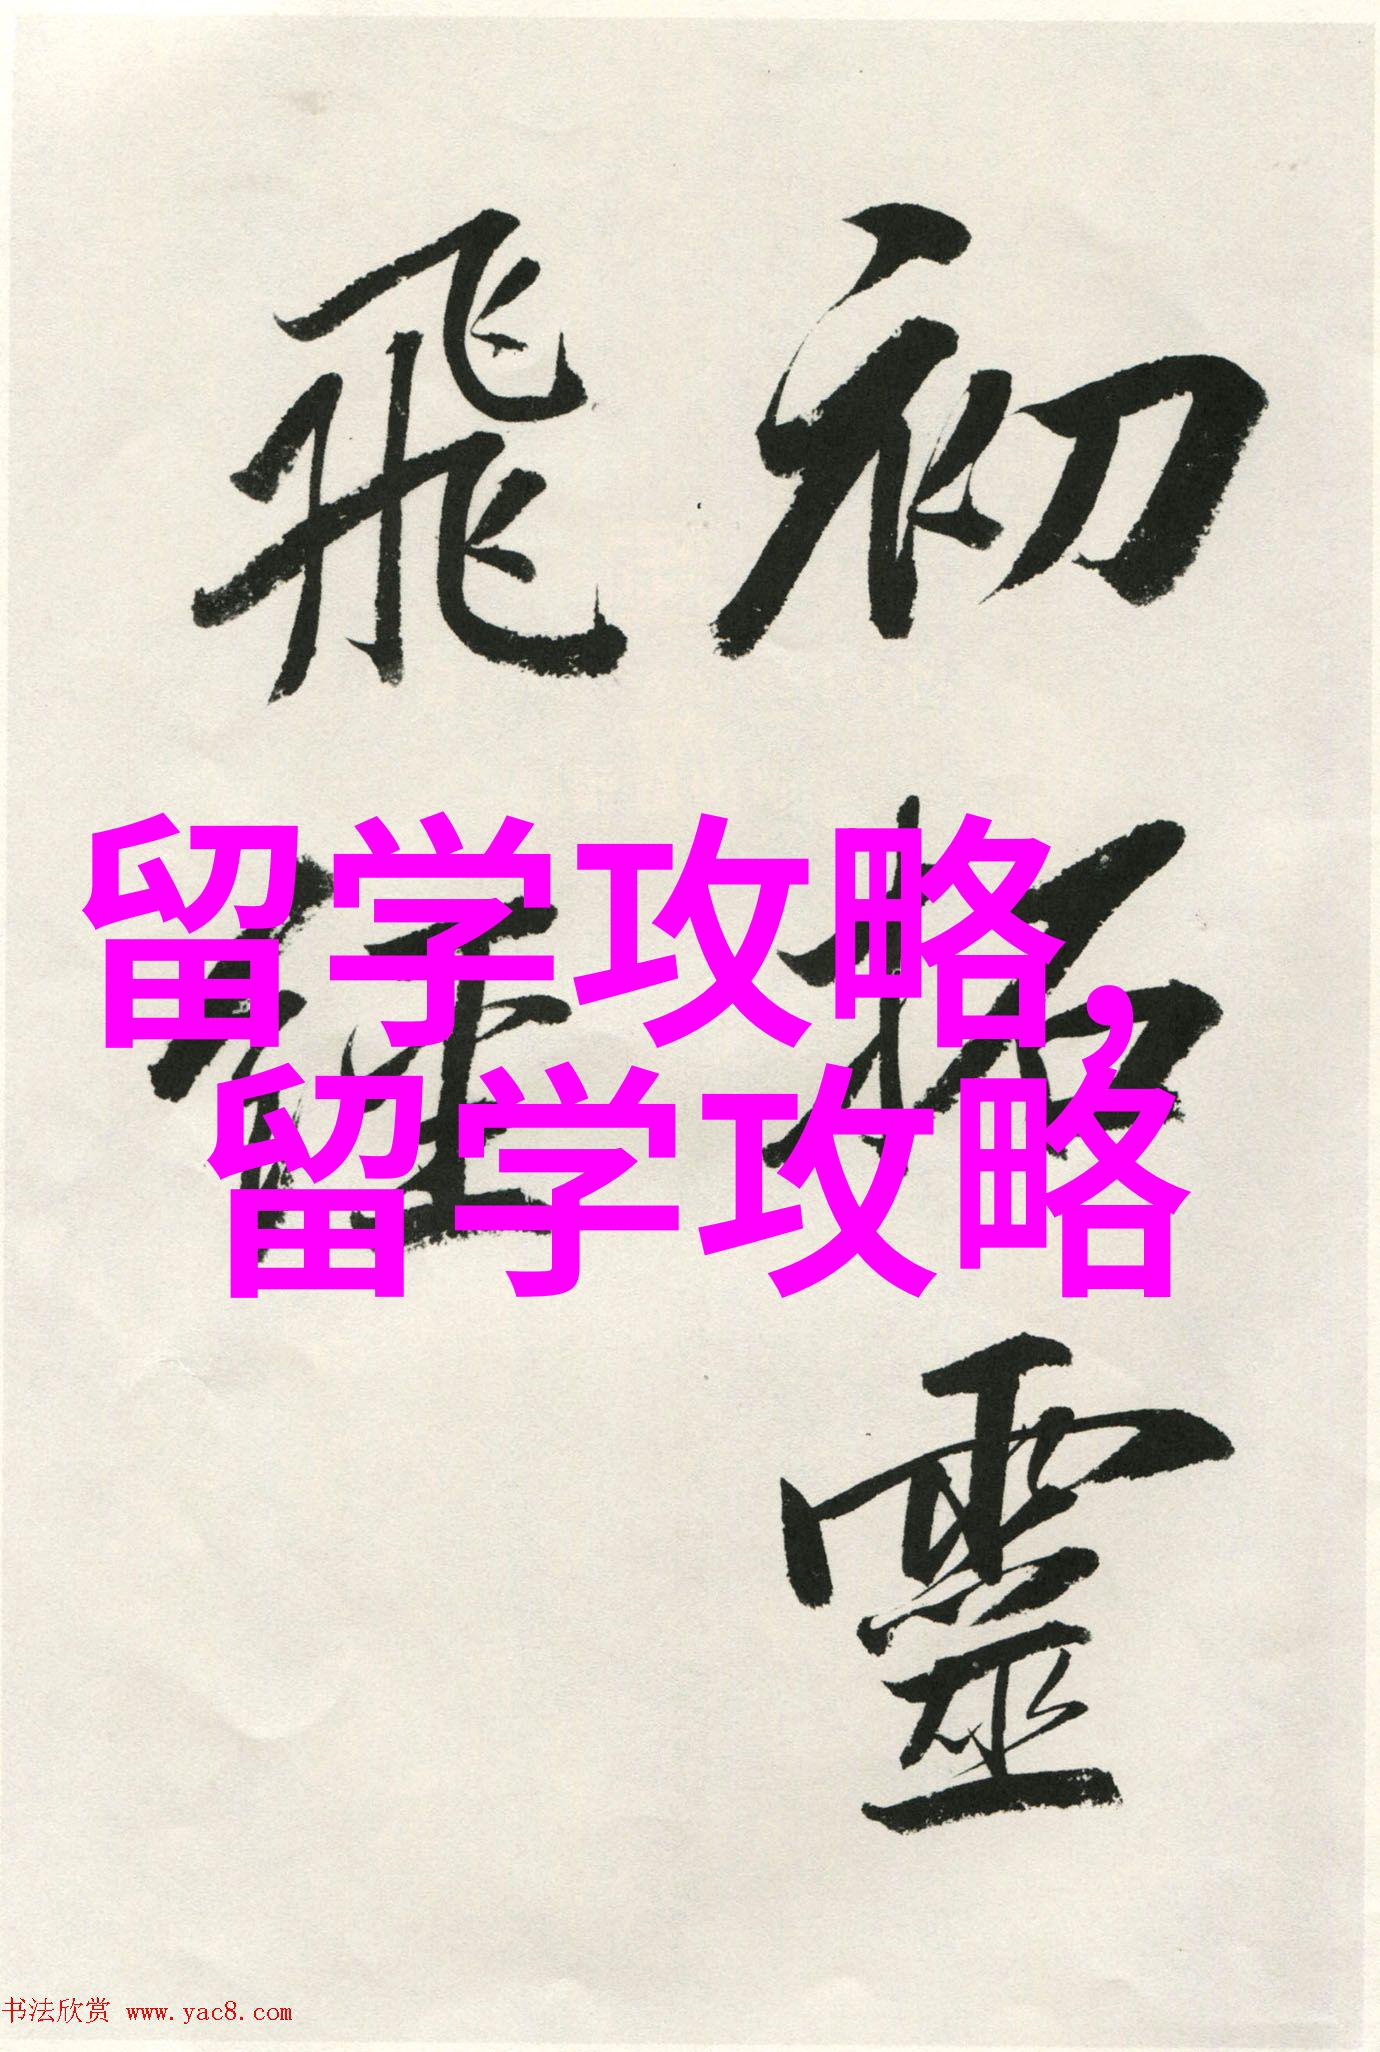 初拓靈
飛經
留学攻略,
留学攻略
书法欣赏 www.yac8.com